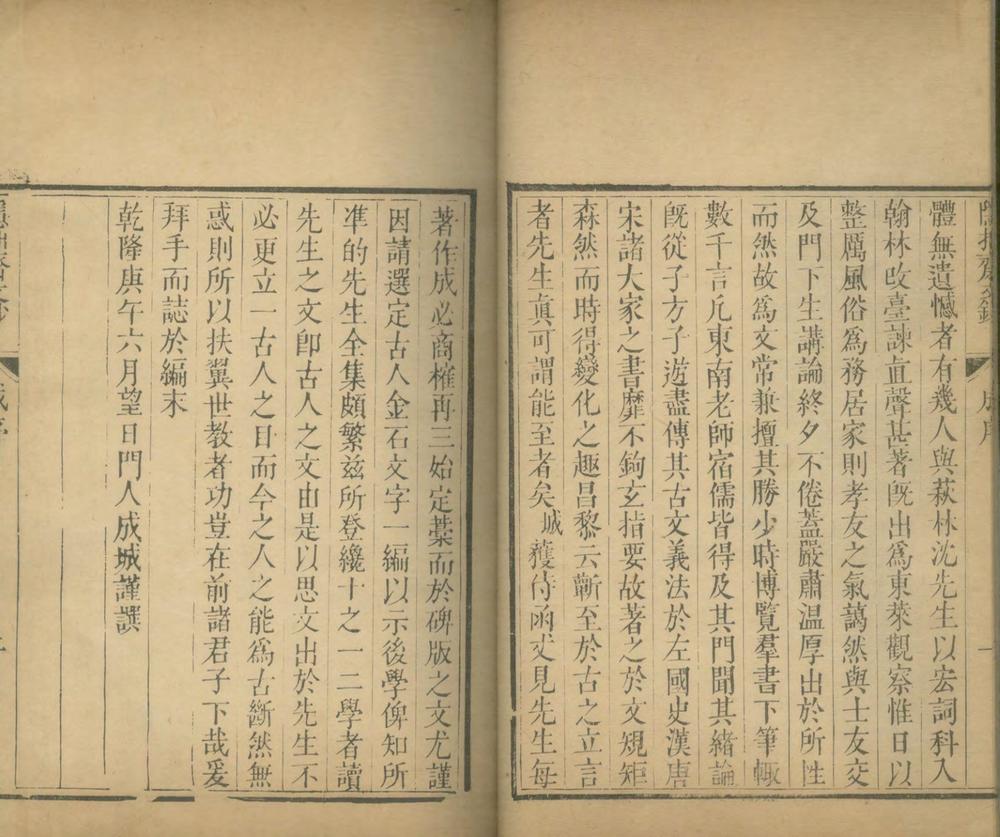 體無遺憾者有幾人與萩林沈先生以宏詞科入
翰林改臺諫直聲甚著旣出爲東萊觀察惟日以
整厲風俗爲務居家則孝友之氣藹然與士友交
及門下生講論終夕不倦蓋嚴肅温厚出於所性
而然故爲文常兼擅其勝少時博覽羣書下筆輙
數千言凡東南老師宿儒皆得及其門聞其緒論
旣從子方子遊盡傳其古文義法於左國史漢唐
宋諸大家之書靡不鉤玄指要故著之於文規矩
森然而時得變化之趣昌黎云蘄至於古之立言
者先生眞可謂能至者矣城獲侍函丈見先生每
著作成必商榷再三始定藁而於碑版之文尤謹
因請選定古人金石文字一編以示後學俾知所
凖的先生全集頗繁兹所登纔十之一二學者讀
先生之文卽古人之文由是以思文出於先生不
必更立一古人之目而今之人之能爲古斷然無
惑則所以扶翼世教者功豈在前諸君子下哉爰
拜手而誌於編末
乾隆庚午六月望日門人成城謹譔